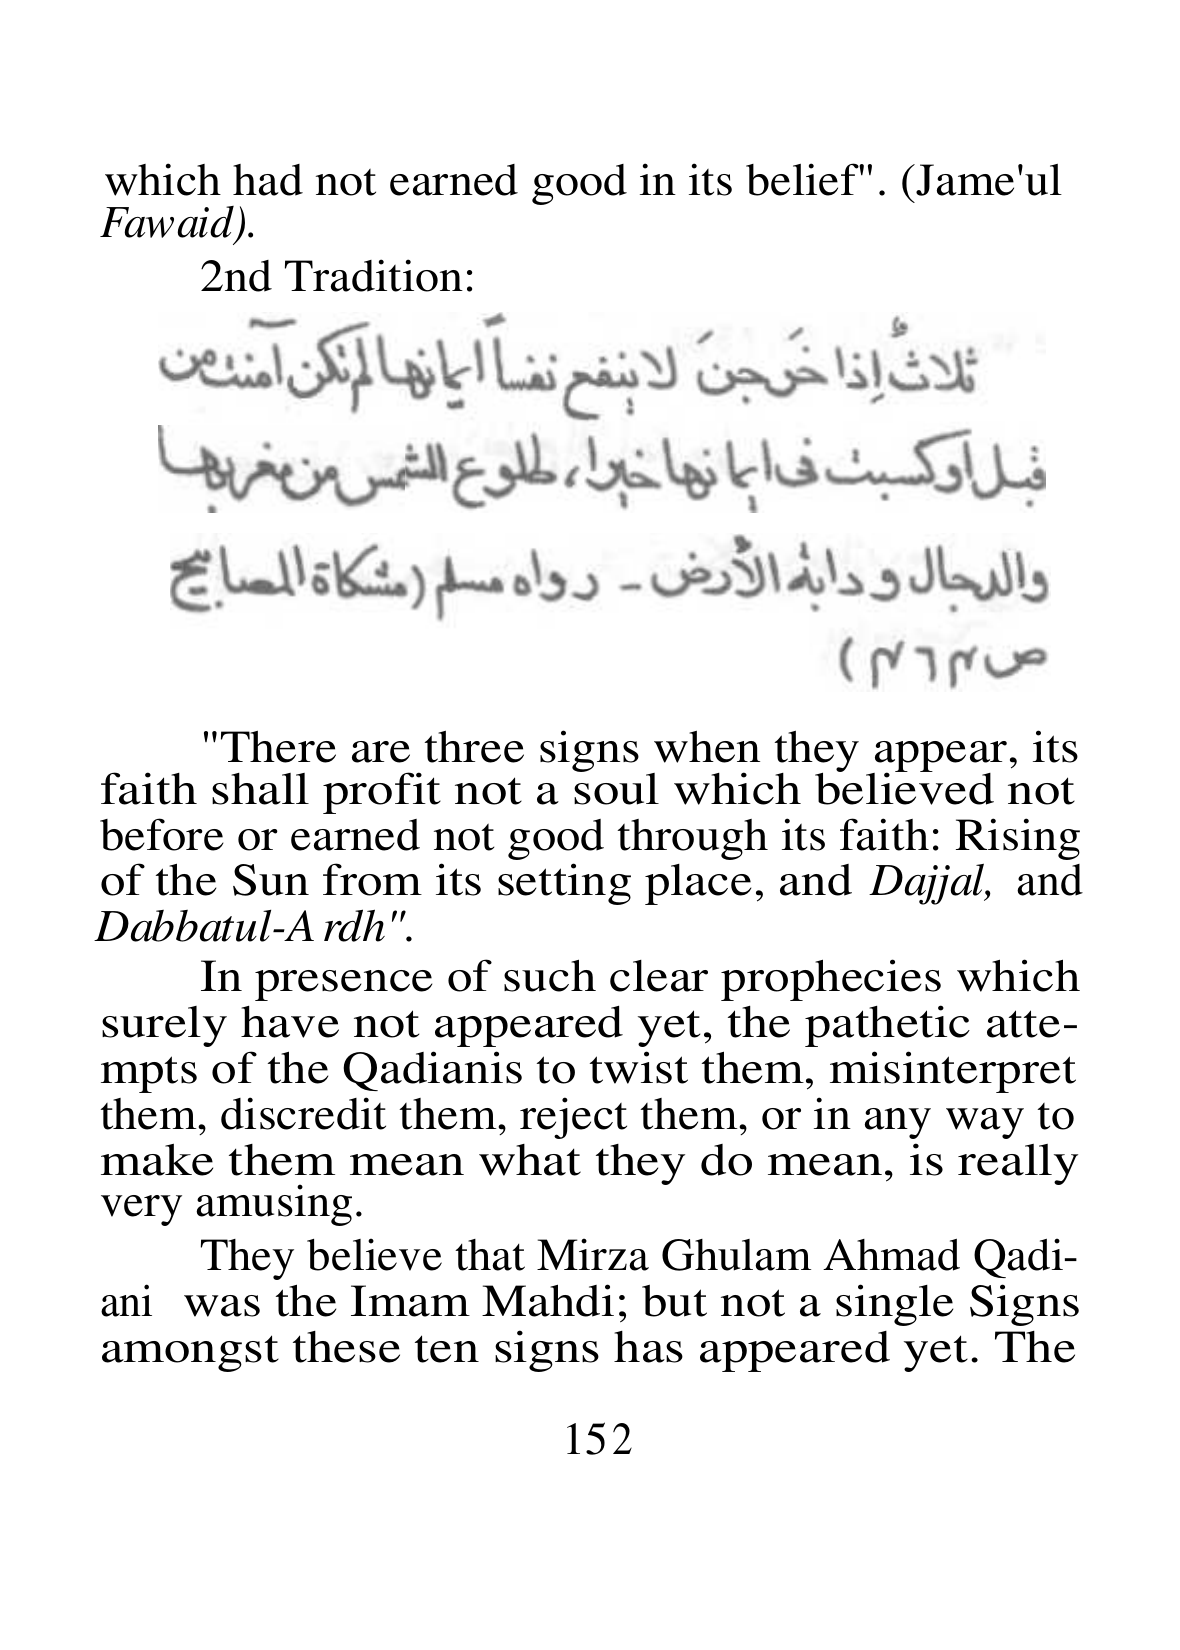 which had not earned good in its belief". (Jame'ul
Fawaid).
2nd Tradition:
ثلاثٌ إِذا خَرجنَ لا ينفع نفساً ايمانها لم تكن آمنت من
قبل او كسبت فى ايمانها خيرا، طلوع الشمس من مغربها
والدجال و دابة الأرض - رواه مسلم (مشكاة المصابيح
ص ٤٦٤)
"There are three signs when they appear, its
faith shall profit not a soul which believed not
before or earned not good through its faith: Rising
of the Sun from its setting place, and Dajjal, and
Dabbatul-Ardh".
In presence of such clear prophecies which
surely have not appeared yet, the pathetic atte-
mpts of the Qadianis to twist them, misinterpret
them, discredit them, reject them, or in any way to
make them mean what they do mean, is really
very amusing.
They believe that Mirza Ghulam Ahmad Qadi-
ani was the Imam Mahdi; but not a single Signs
amongst these ten signs has appeared yet. The
152